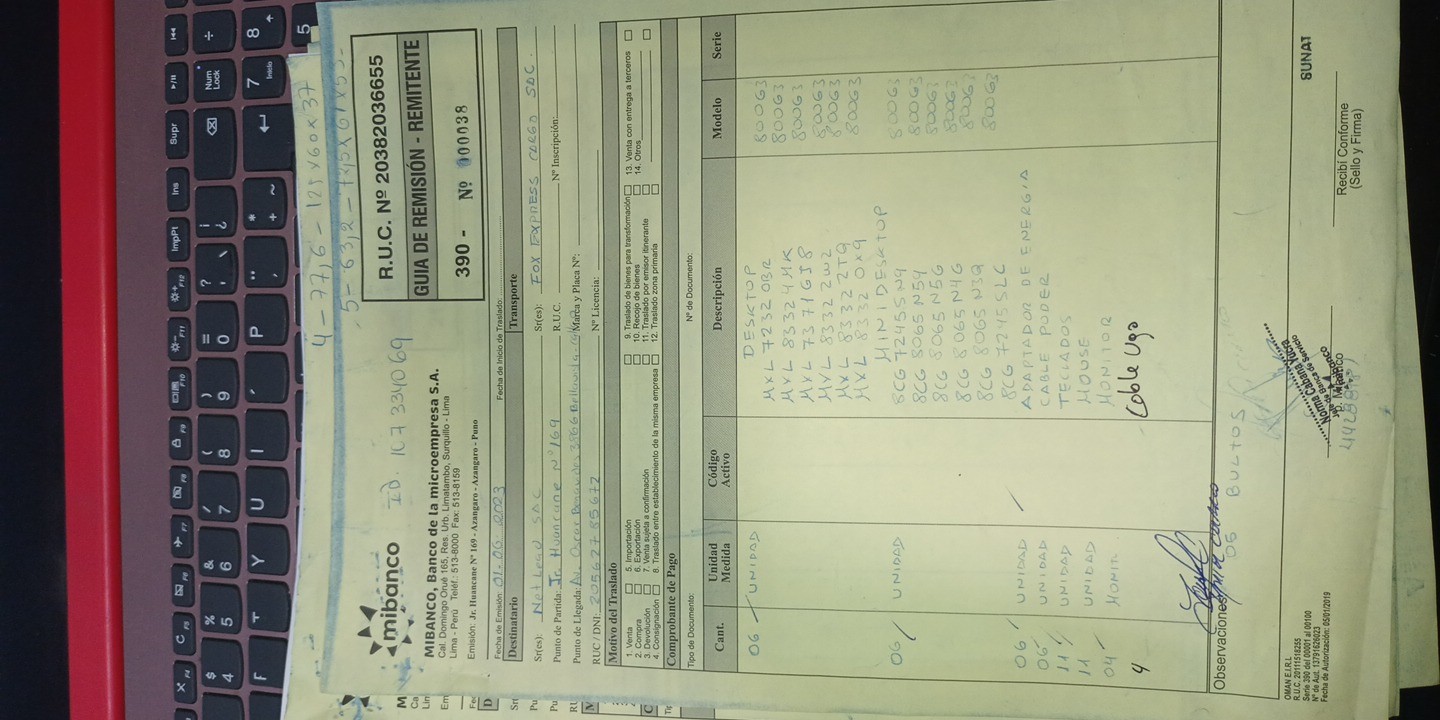 4 - 77,6 - 125x60x37
5 - 63,2 -
mibanco
ID. 107334069
R.U.C. Nº 20382036655
GUIA DE REMISIÓN - REMITENTE
390 - Nº 000038
MIBANCO, Banco de la microempresa S.A.
Cal. Domingo Orué 165, Res. Urb. Limatambo, Surquillo - Lima
Lima - Perú Teléf.: 513-8000 Fax: 513-8159
Emisión: Jr. Huancane Nº 169 - Azangaro - Azangaro - Puno
Fecha de Emisión: 01-06-2023 Fecha de Inicio de Traslado:
Destinatario Transporte
Sr(es): SAC Sr(es): FOX EXPRESS CARGO SAC.
Punto de Partida: Jr. Huancane Nº 169 R.U.C. Nº Inscripción:
Punto de Llegada: Av. Oscar Benavides 3866 Marca y Placa Nº:
RUC / DNI: 20562785672 Nº Licencia:
Motivo del Traslado
1. Venta 5. Importación 9. Traslado de bienes para transformación 13. Venta con entrega a terceros
2. Compra 6. Exportación 10. Recojo de bienes 14. Otros
3. Devolución 7. Venta sujeta a confirmación 11. Traslado por emisor itinerante
4. Consignación 8. Traslado entre establecimiento de la misma empresa 12. Traslado zona primaria
Comprobante de Pago
Tipo de Documento: Nº de Documento:
Cant. Unidad Medida Código Activo Descripción Modelo Serie
06 UNIDAD DESKTOP
MXL 7232 0BR 800G3
MXL 83324HK 800G3
MXL 7371GJ8 800G3
MXL 8332 2W2 800G3
MXL 8332 2TQ 800G3
MXL 8332 0X9 800G3
06 UNIDAD MINI DESKTOP
8CG 7245SN9 800G3
8CG 8065N5Y 800G3
8CG 8065N5G 800G3
8CG 8065N4G 800G3
8CG 8065N3Q 800G3
8CG 7245SLC 800G3
06 UNIDAD ADAPTADOR DE ENERGIA
06 UNIDAD CABLE PODER
11 UNIDAD TECLADOS
11 UNIDAD MOUSE
04 MONIT. MONITOR
4 Cable Vga
Observaciones:
05 BULTOS
OMAN E.I.R.L
R.U.C. 20111518255
Serie 390 del 00001 al 00100
Nº de Aut. 13791626023
Fecha de Autorización: 05/01/2019
Norma
P. Mibanco
Recibí Conforme
(Sello y Firma)
SUNAT